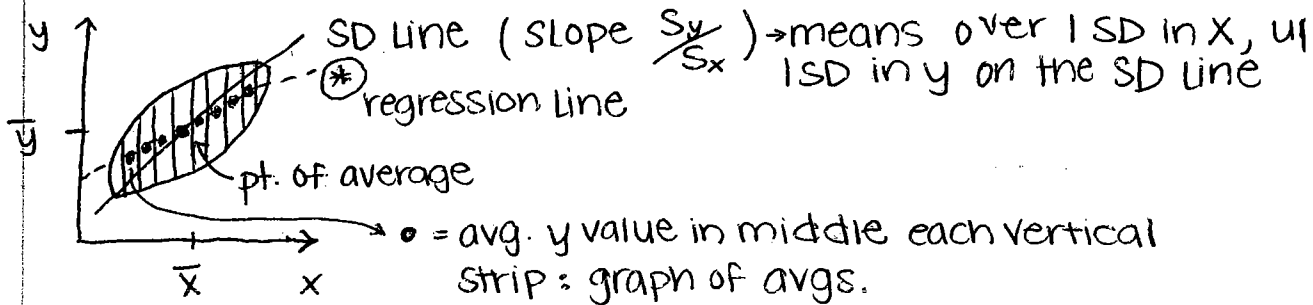 y
SD Line (slope Sy/Sx) → means over 1 SD in X,
1SD in y on the SD Line
* regression Line
y̅
pt. of average
• = avg. y value in middle each vertical
strip: graph of avgs.
x̅ x